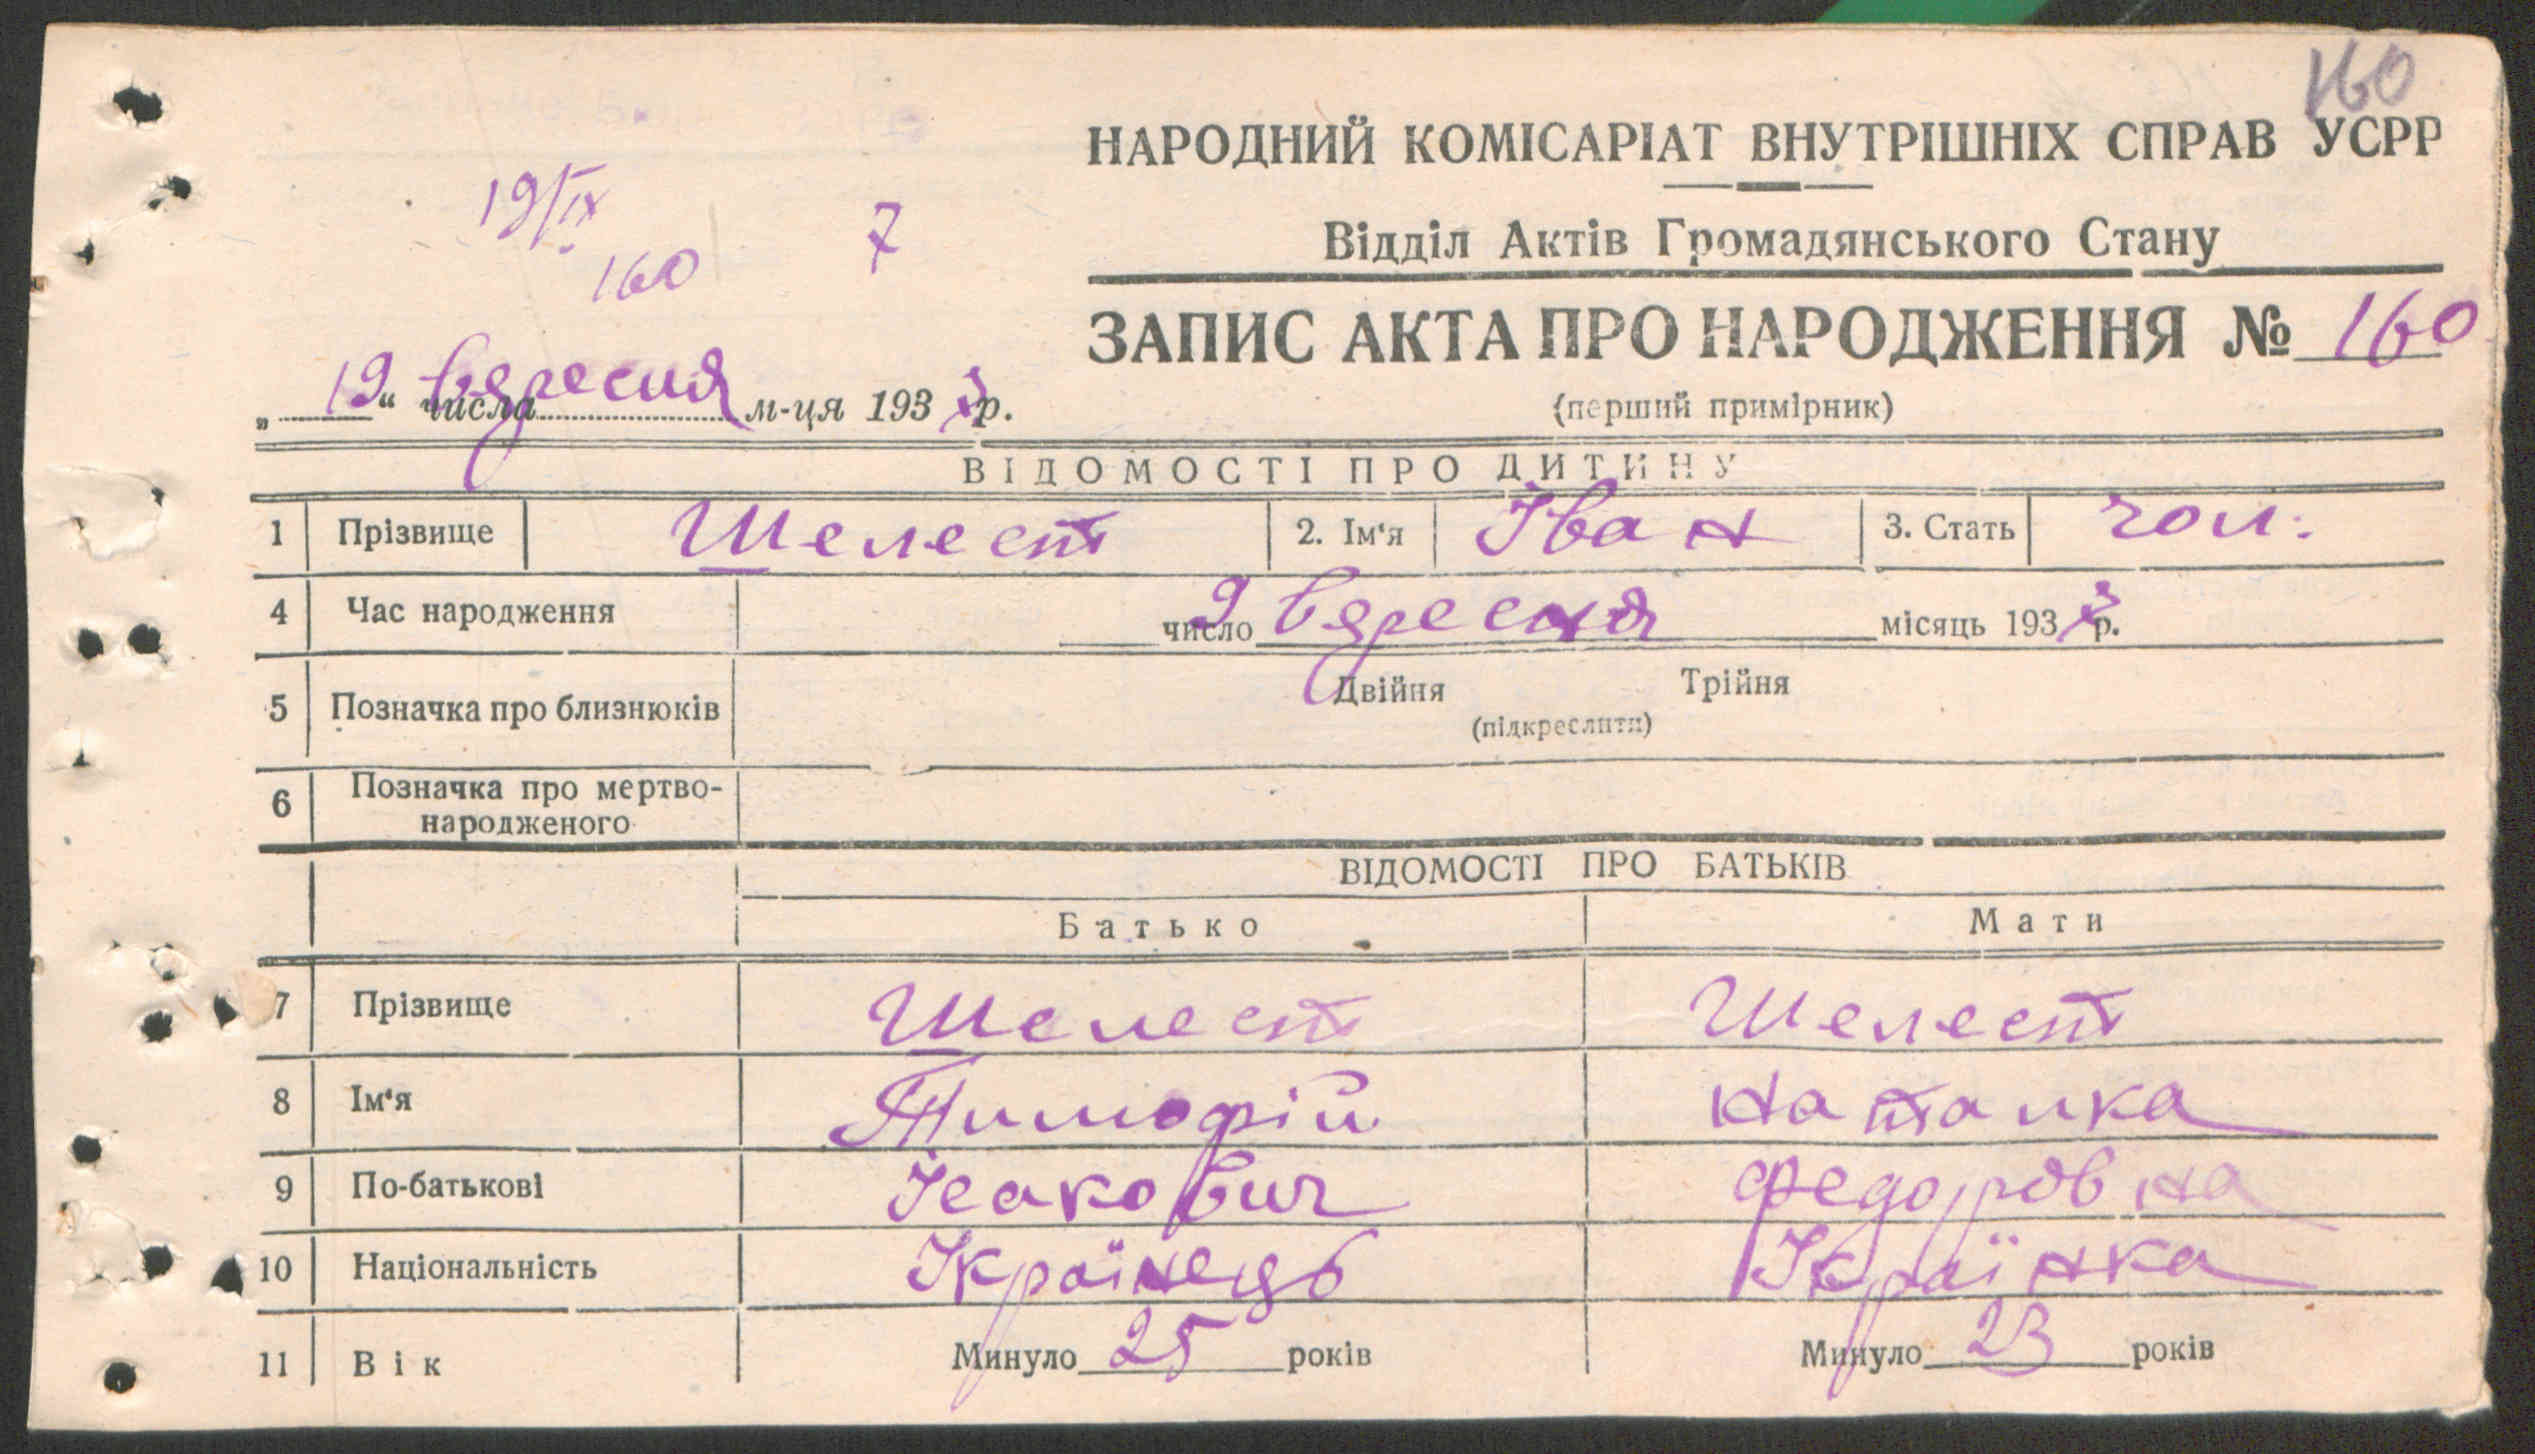 160
НАРОДНИЙ КОМІСАРІАТ ВНУТРІШНІХ СПРАВ УСРР
19/IX
160
7
Відділ Актів Громадянського Стану
ЗАПИС АКТА ПРО НАРОДЖЕННЯ № 160
(перший примірник)
„ 19 “ числа вересня м-ця 1937 р.
ВІДОМОСТІ ПРО ДИТИНУ
1 Прізвище Шелест 2. Ім'я Іван 3. Стать чол.
4 Час народження 9 число вересня місяць 1937 р.
5 Позначка про близнюків Двійня Трійня
(підкреслити)
6 Позначка про мертво-
народженого
ВІДОМОСТІ ПРО БАТЬКІВ
Батько Мати
7 Прізвище Шелест Шелест
8 Ім'я Тимофій Наталка
9 По-батькові Ісакович Федоровна
10 Національність Українець Українка
11 Вік Минуло 25 років Минуло 23 років